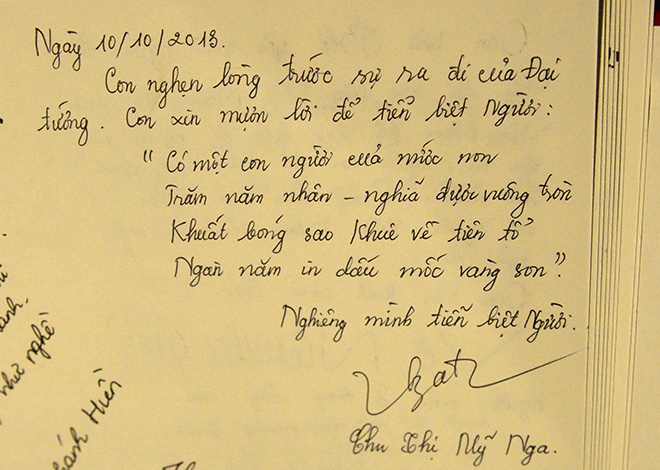 Ngày 10/10/2013.
Con nghẹn lòng trước sự ra đi của Đại
tướng. Con xin mượn lời để tiễn biệt Người:
"Có một con người của nước non
Trăm năm nhân - nghĩa được vuông tròn
Khuất bóng sao Khuê về tiên tổ
Ngàn năm in dấu mốc vàng son".
Nghiêng mình tiễn biệt Người.
Chu Thị Mỹ Nga.
như nghề
Hiền